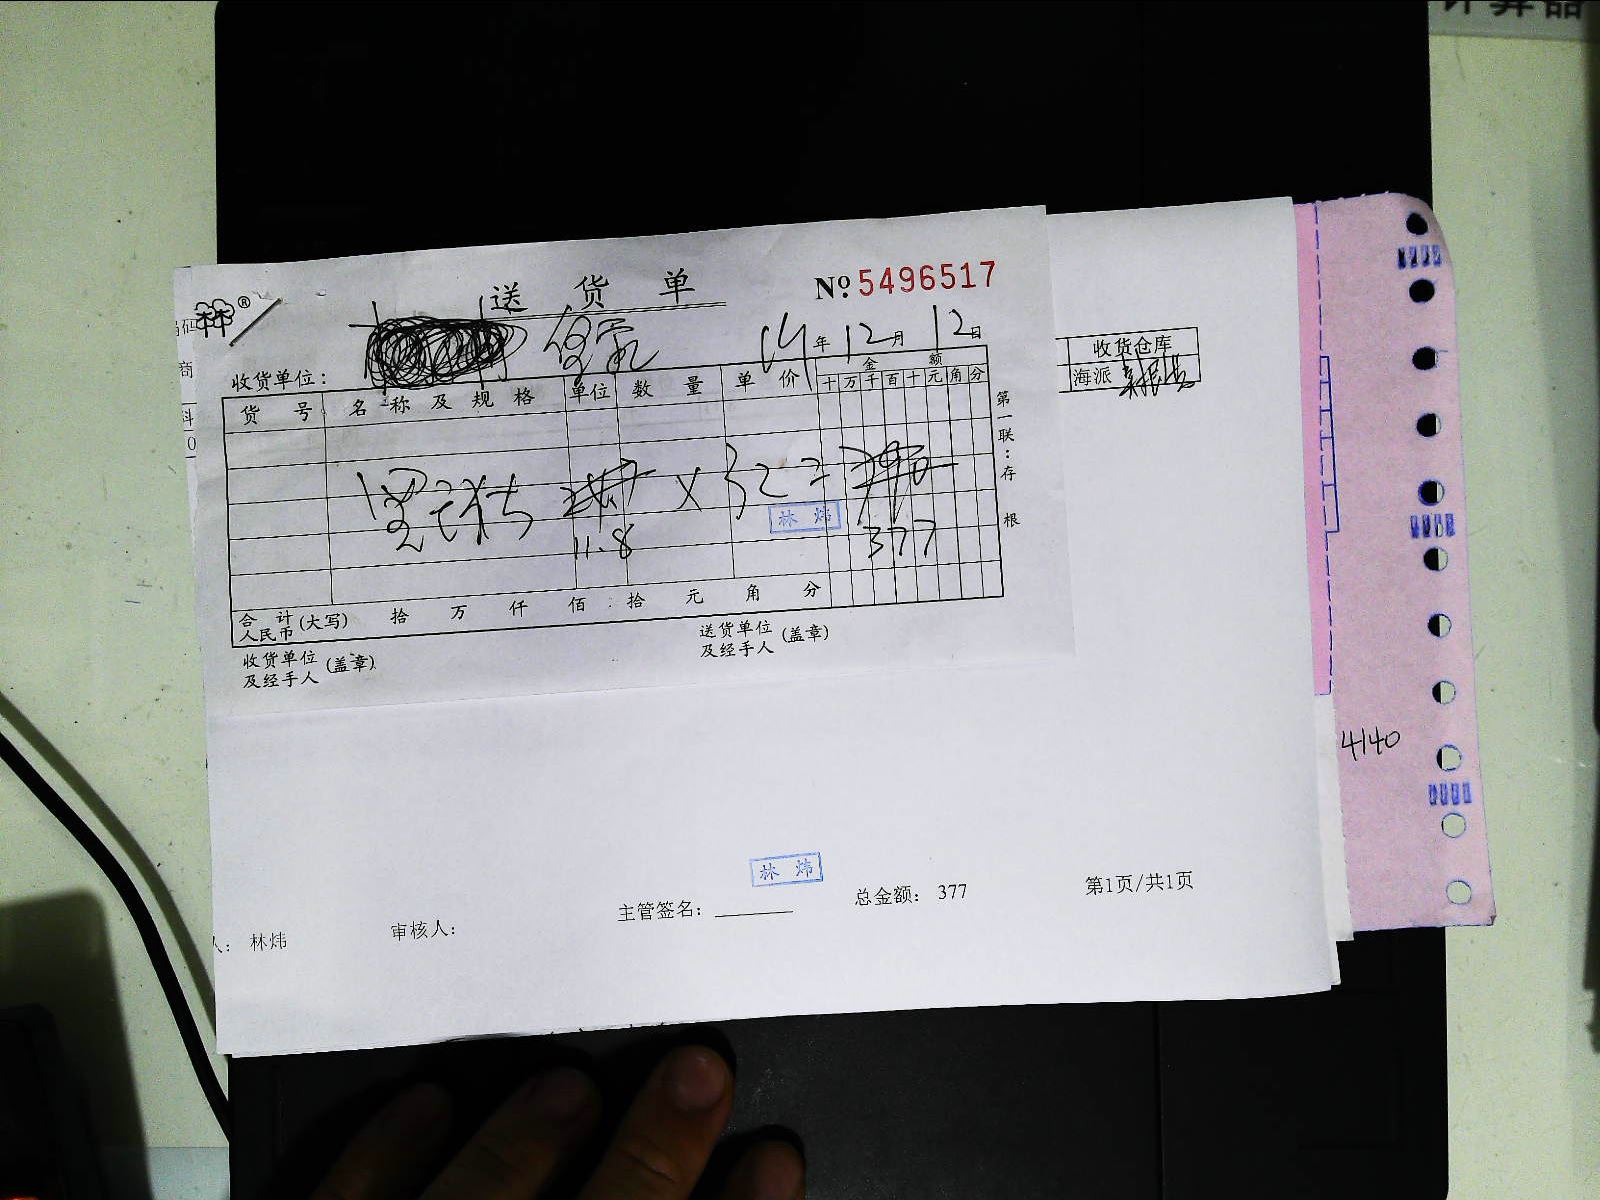 计算器
送货单
№ 5496517
14年12月12日
收货单位:
货号 名称及规格 单位 数量 单价 金额
十万千百十元角分
x 32=
11.8 377
林炜
合计人民币(大写) 拾 万 仟 佰 拾 元 角 分
收货单位及经手人(盖章)
送货单位及经手人(盖章)
第一联:存根
码
商
科
0
收货仓库
海派
4140
林炜
人: 林炜 审核人: 主管签名: 总金额: 377 第1页/共1页